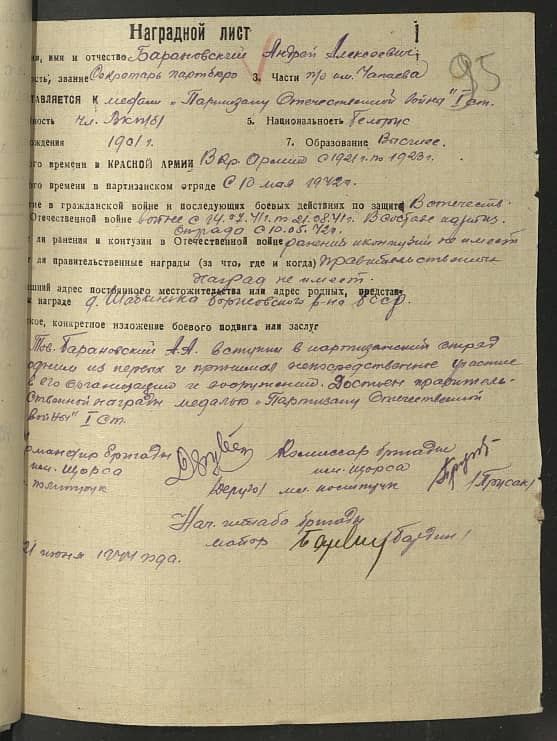 Наградной лист
95
имя и отчество Барановский Андрей Алексеевич
ость, звание Секретарь партбюро 3. Части п/о им. Чапаева
ТАВЛЯЕТСЯ К медали "Партизану Отечественной войны" I ст.
ность чл. ВКП(б) 5. Национальность Белорус
ождения 1901 г. 7. Образование Высшее.
ого времени в КРАСНОЙ АРМИИ В кр. Армии с 1921 г. по 1923 г.
ого времени в партизанском отряде С 10 мая 1942 г.
тие в гражданской войне и последующих боевых действиях по защите В отечеств.
Отечественной войне войне с 14.07.41 г. по 21.08.41 г. В составе партиз.
отряда с 10.05.42 г.
ли ранения и контузии в Отечественной войне ранений и контузий не имеет
ли правительственные награды (за что, где и когда) правительственных
наград не имеет.
ший адрес постоянного местожительства или адрес родных, представ.
награде д. Борисовского р-на БССР.
кое, конкретное изложение боевого подвига или заслуг
Тов. Барановский А.А. вступил в партизанский отряд
одним из первых и принимал непосредственное участие
в его организации и вооружении. Достоин правитель-
ственной награды медалью "Партизану Отечественной
войны" I ст.
Командир бригады Комиссар бригады
им. Щорса им. Щорса
политрук (Дерузо) мл. политрук (Прусак)
Нач. штаба бригады
майор
21 июня 1944 года.